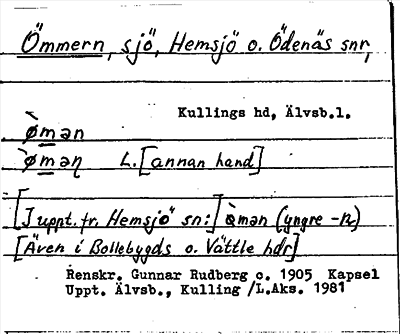 Ömmern, sjö, Hemsjö o. Ödenäs snr,
Kullings hd, Älvsb.l.
ø̀mən
ø̀məη L.[annan hand]
[I uppt. fr. Hemsjö sn:] ø̀mən (yngre -n)
[Även i Bollebygds o. Vättle hdr]
Renskr. Gunnar Rudberg o. 1905 Kapsel
Uppt. Älvsb., Kulling /L.Aks. 1981